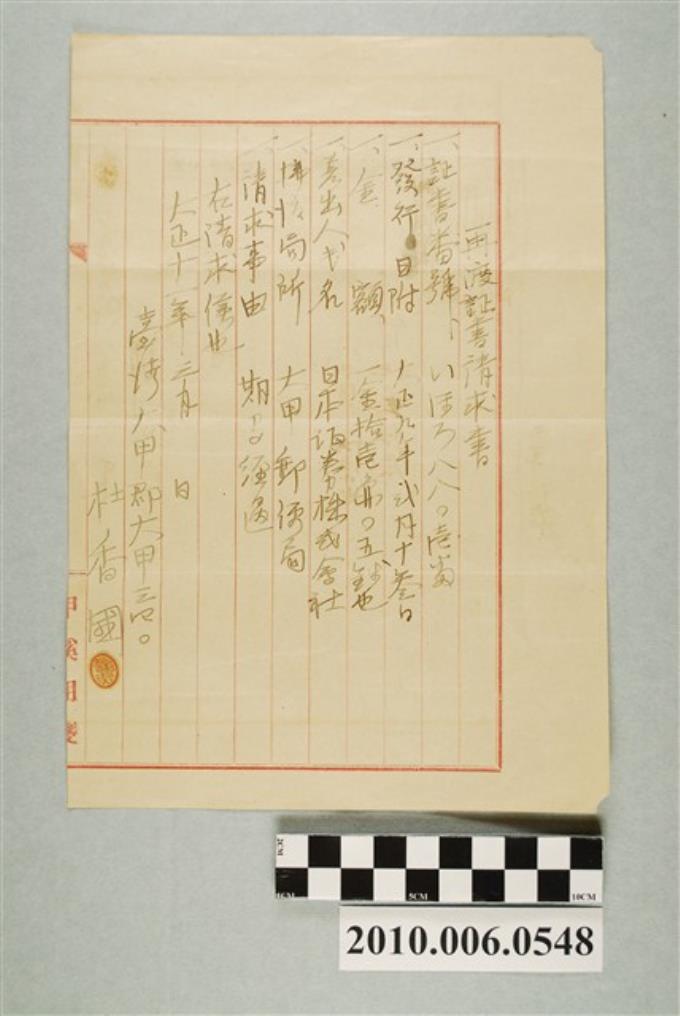 再渡証書請求書
一、証書番號、 いほろ八八〇壱
一、發行日附 大正九年弐月十参日
一、金額、 一金拾壱円〇五銭也
一、差出人氏名 日本証券株式會社
一、拂渡局所 大甲郵便局
一、請求事由 期日経過
右請求候也
大正十一年三月 日
臺湾大甲郡大甲三四〇
杜香國
甲 用箋
2CM
0CM 5CM 10CM
2010.006.0548